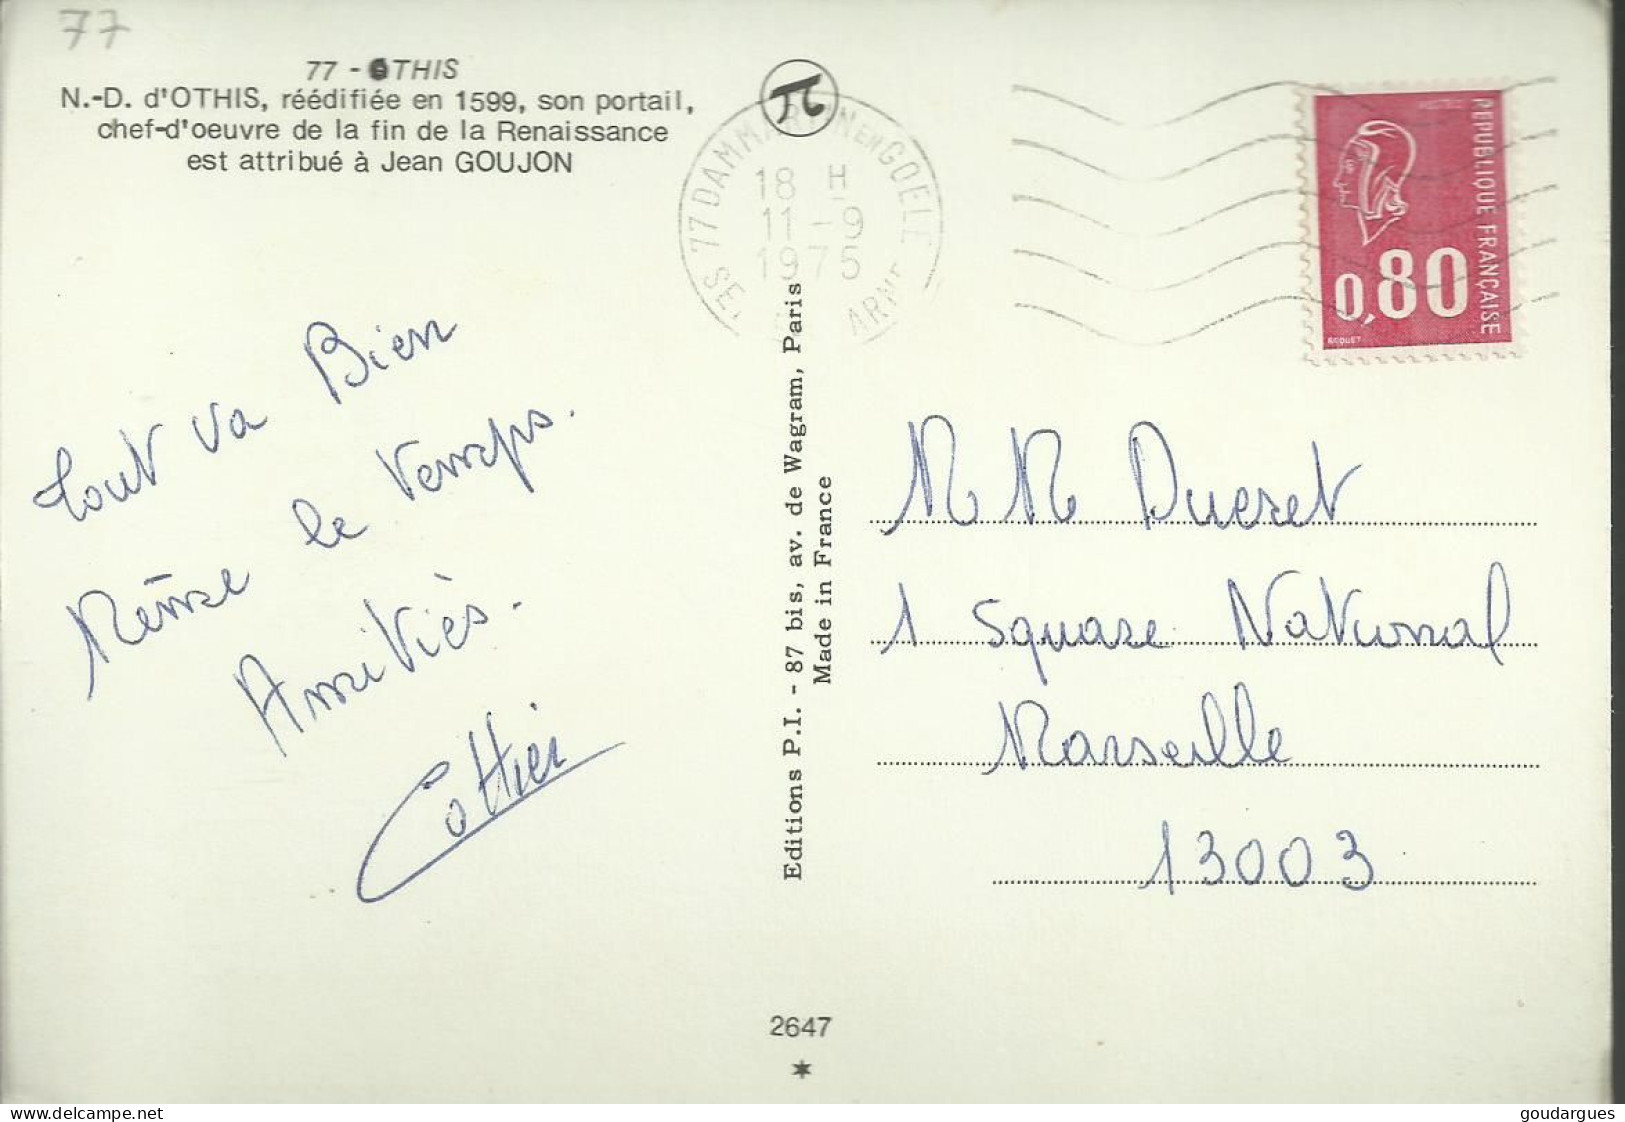 77
77 - OTHIS
N.-D. d'OTHIS, réédifiée en 1599, son portail,
chef-d'oeuvre de la fin de la Renaissance
est attribué à Jean GOUJON
77 DAMMARTIN EN GOELE
18 H
11 - 9
1975
REPUBLIQUE FRANÇAISE
0,80
Tout va Bien
Même le temps.
Amitiés.
Cottier
Editions P.I. - 87 bis, av. de Wagram, Paris
Made in France
M M Ducret
1 Square National
Marseille
13003
2647
www.delcampe.net
goudargues